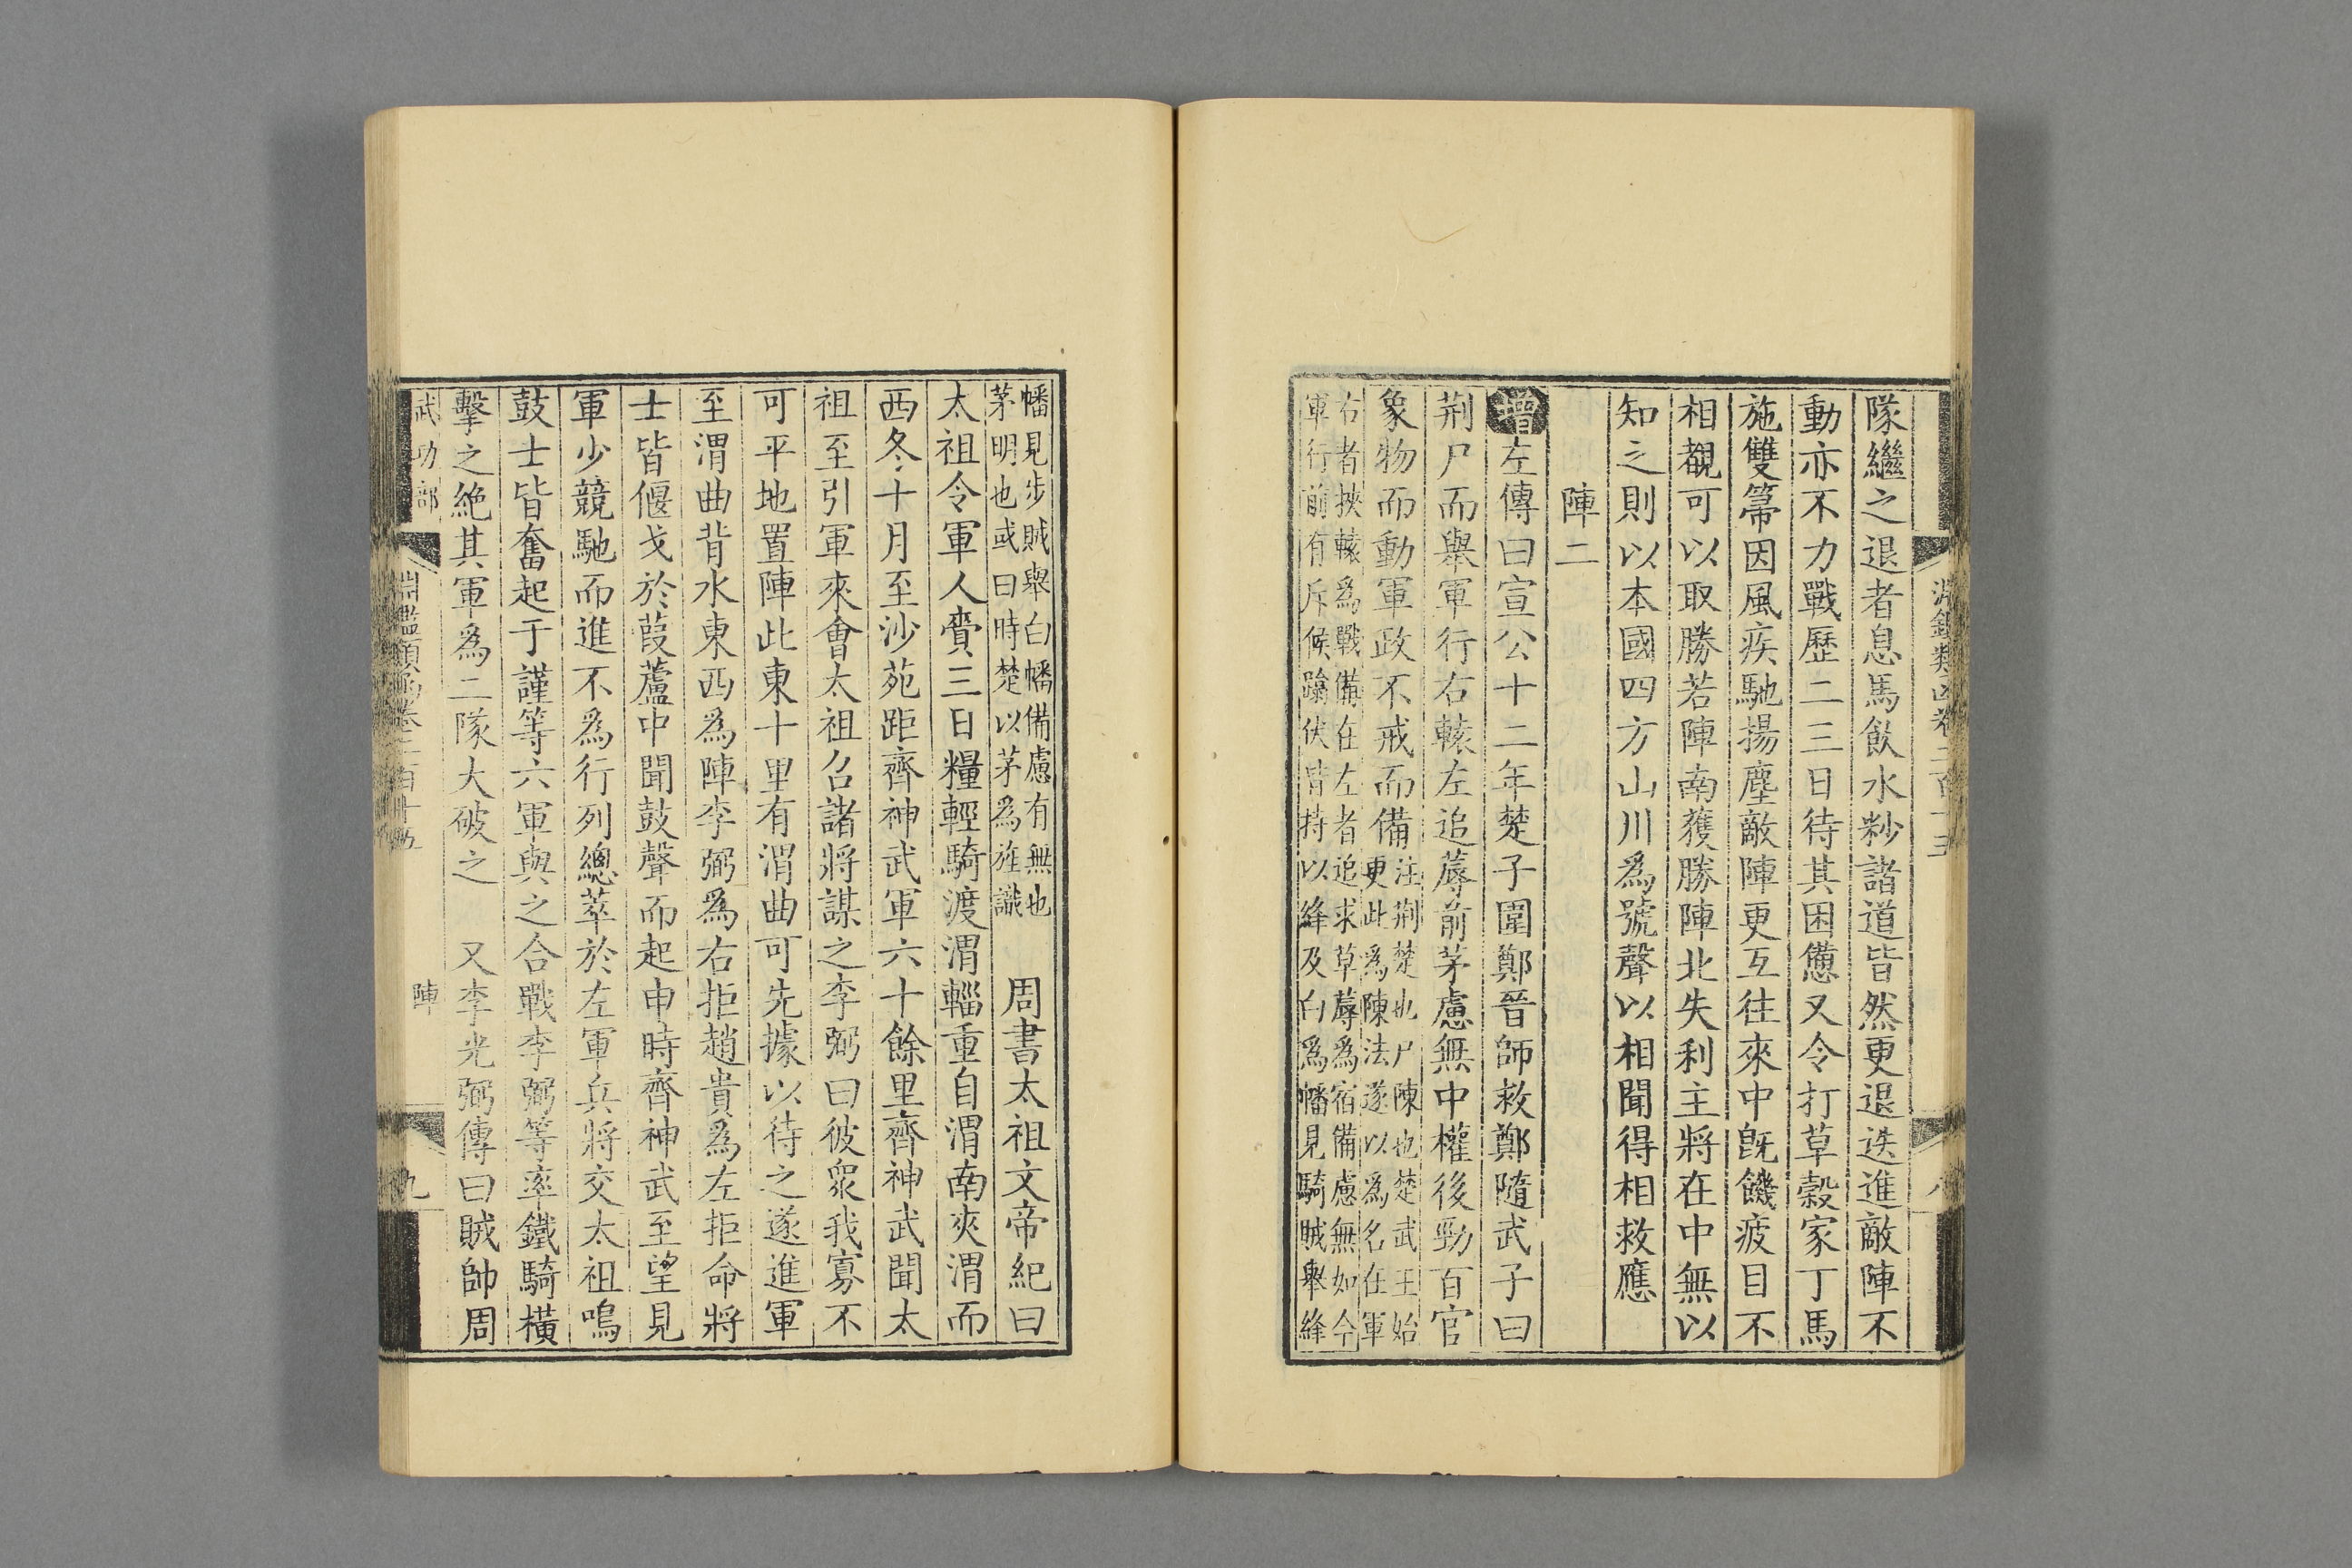 隊繼之退者息馬飲水粆諸道皆然更退迭進敵陣不
動亦不力戰歷二三日待其困憊又令打草穀家丁馬
施雙箒因風疾馳揚塵敵陣更互往來中旣饑疲目不
相覩可以取勝若陣南獲勝陣北失利主將在中無以
知之則以本國四方山川爲號聲以相聞得相救應
陣二
增左傳曰宣公十二年楚子圍鄭晉師救鄭隨武子曰
荆尸而舉軍行右轅左追蓐前茅慮無中權後勁百官
象物而動軍政不戒而備
注荆楚也尸陳也楚武王始
更此爲陳法遂以爲名在軍
右者挾轅爲戰備在左者追求草蓐爲宿備慮無如今
軍行前有斥候蹹伏皆持以絳及白爲幡見騎賊舉絳
幡見步賊舉白幡備慮有無也
茅明也或曰時楚以茅爲旌識
周書太祖文帝紀曰
太祖令軍人賫三日糧輕騎渡渭輜重自渭南夾渭而
西冬十月至沙苑距齊神武軍六十餘里齊神武聞太
祖至引軍來會太祖召諸將謀之李弼曰彼衆我寡不
可平地置陣此東十里有渭曲可先據以待之遂進軍
至渭曲背水東西爲陣李弼爲右拒趙貴爲左拒命將
士皆偃戈於葭蘆中聞鼓聲而起申時齊神武至望見
軍少競馳而進不爲行列總萃於左軍兵將交太祖鳴
鼓士皆奮起于謹等六軍與之合戰李弼等率鐵騎橫
擊之絶其軍爲二隊大破之　又李光弼傳曰賊帥周
武功部
淵鑑類函卷二百十五
陣
九